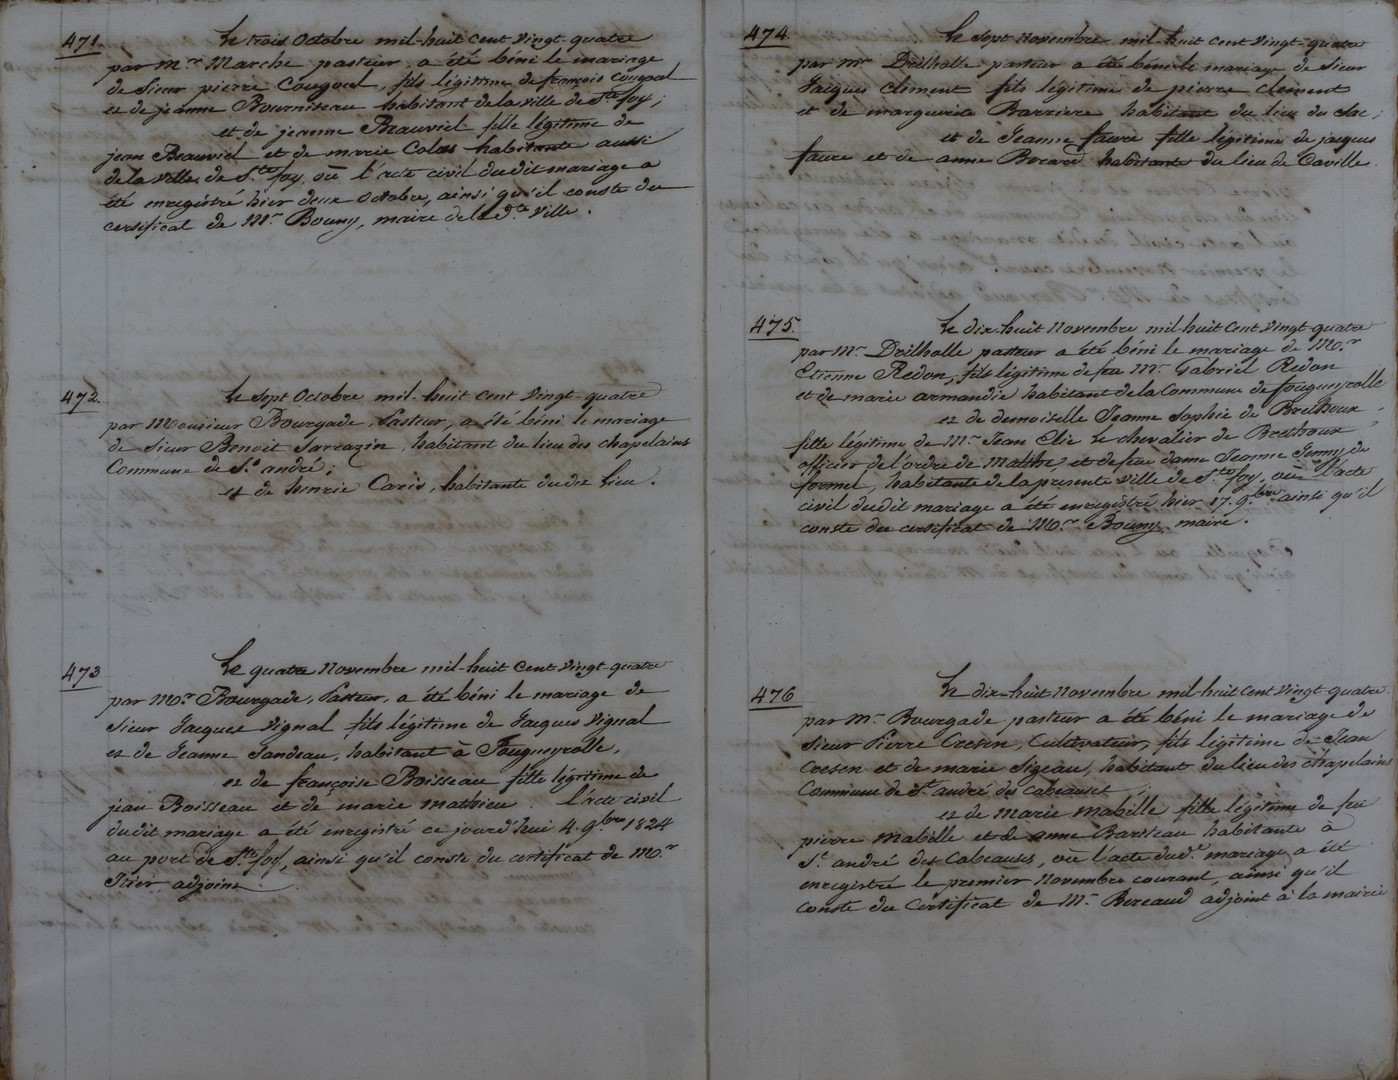 471.
Le trois Octobre mil-huit cent vingt-quatre
par mr. Marche pasteur, a été béni le mariage
de Sieur pierre Cougoul, fils légitime de françois Cougoul
et de jeanne Bourniteau habitant de la ville de Ste foy;
et de jeanne Beauviel fille légitime de
jean Beauviel et de marie Colas habitante aussi
de la ville de Ste foy, où l'acte civil dudit mariage a
été enregistré hier deux Octobre, ainsi qu'il conste du
certificat de Mr. Bouny, maire de la de. ville.
472.
Le Sept Octobre mil-huit cent vingt-quatre
par Monsieur Bourgade, Pasteur, a été béni le mariage
de Sieur Benoit Sarrazin, habitant du lieu des chapelains
Commune de St. andré;
et de henrie Caris, habitante du dit Lieu.
473
Le quatre Novembre mil-huit cent vingt-quatre
par Mr. Bourgade, Pasteur, a été béni le mariage de
Sieur Jacques Vignal fils légitime de Jacques Vignal
et de Jeanne Jandeau, habitant à Fougueyrolle,
et de françoise Boisseau fille légitime de
jean Boisseau et de marie mathieu. L'acte civil
dudit mariage a été enregistré ce jourd'hui 4. 9bre 1824
au port de Ste foy, ainsi qu'il conste du certificat de Mr.
Itier adjoint.
474
Le Sept Novembre mil-huit cent vingt-quatre
par mr Drilholle pasteur a été béni le mariage de Sieur
Jacques Clement fils légitime de pierre Clement
et de marguerite Barriere habitant du lieu du
et de Jeanne faure fille légitime de jacques
faure et de anne habitante du lieu de Caville.
475
Le dix-huit Novembre mil-huit cent vingt-quatre
par Mr. Drilholle pasteur a été béni le mariage de Mr.
Etienne Redon, fils légitime de feu Mr. Gabriel Redon
et de marie armandie habitant de la Commune de fougueyrolle
et de demoiselle Jeanne Sophie de Brethoux,
fille légitime de Mr. Jean Elie le chevalier de Brethoux
officier de l'ordre de Malthe, et de feu dame Jeanne Jenny de
formel, habitante de la presente ville de Ste foy, où l'acte
civil dudit mariage a été enregistré hier 17. 9bre ainsi qu'il
conste du certificat de Mr. Bouny maire.
476
Le dix-huit Novembre mil-huit cent vingt-quatre
par Mr. Bourgade pasteur a été béni le mariage de
Sieur Pierre Cresen, Cultivateur, fils légitime de Jean
Cresen et de marie Sigeau, habitant du lieu des Chapelains
Commune de St. andré des Cabeauset;
et de Marie Mabille fille légitime de feu
pierre Mabille et de anne Barteau habitante à
St. andré des Cabeauses, où l'acte dud. mariage a été
enregistré le premier Novembre courant, ainsi qu'il
conste du Certificat de Mr. Bereaud adjoint à la mairie